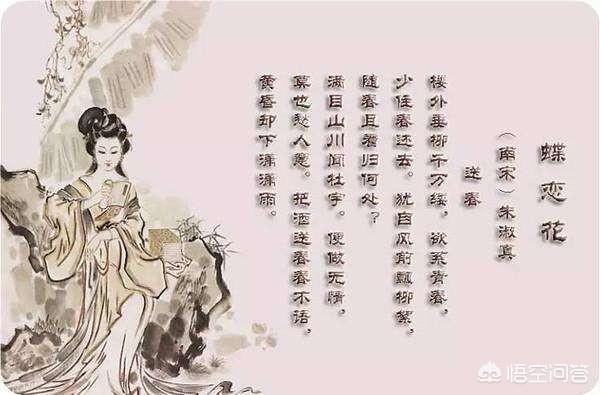 蝶恋花
（南宋）朱淑真
送春
楼外垂柳千万缕，欲系青春，
少住春还去。犹自风前飘柳絮，
随春且看归何处？
满目山川闻杜宇。便做无情，
莫也愁人意。把酒送春春不语，
黄昏却下潇潇雨。
悟空问答